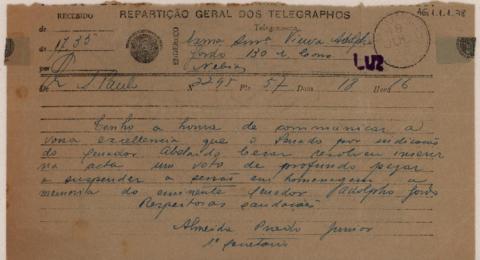 AG 1.1.1.98
RECEBIDO
REPARTIÇÃO GERAL DOS TELEGRAPHOS
Telegramma
de
ás 17.35
por
ENDEREÇO
Vieira Adolpho
Gordo 130
LUZ
De S Paulo N 2295 Pls 57 Data 18 Hora 16
Tenho a honra de communicar a
vossa excellencia que o Senado por indicação
do senador Abelardo Cesar resolveu inserir
na acta um voto de profundo pezar
e suspender a sessão em homenagem a
memoria do eminente senador Adolpho Gordo
Respeitosas saudações
Almeida Prado Junior
1º secretario